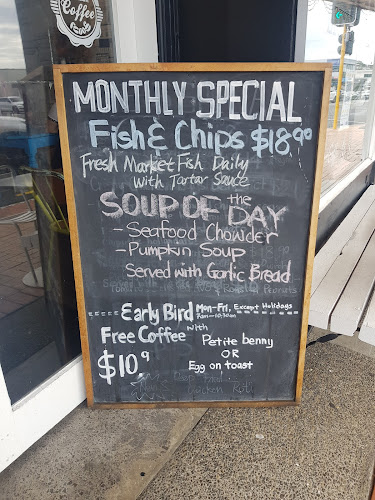 Coffee
MONTHLY SPECIAL
Fish & Chips $18.90
Fresh Market Fish Daily
with Tartar Sauce
SOUP OF the DAY
- Seafood Chowder
- Pumpkin Soup
Served with Garlic Bread
Early Bird Mon-Fri, Except Holidays
Free Coffee with
$10.9 Petite benny
OR
Egg on toast